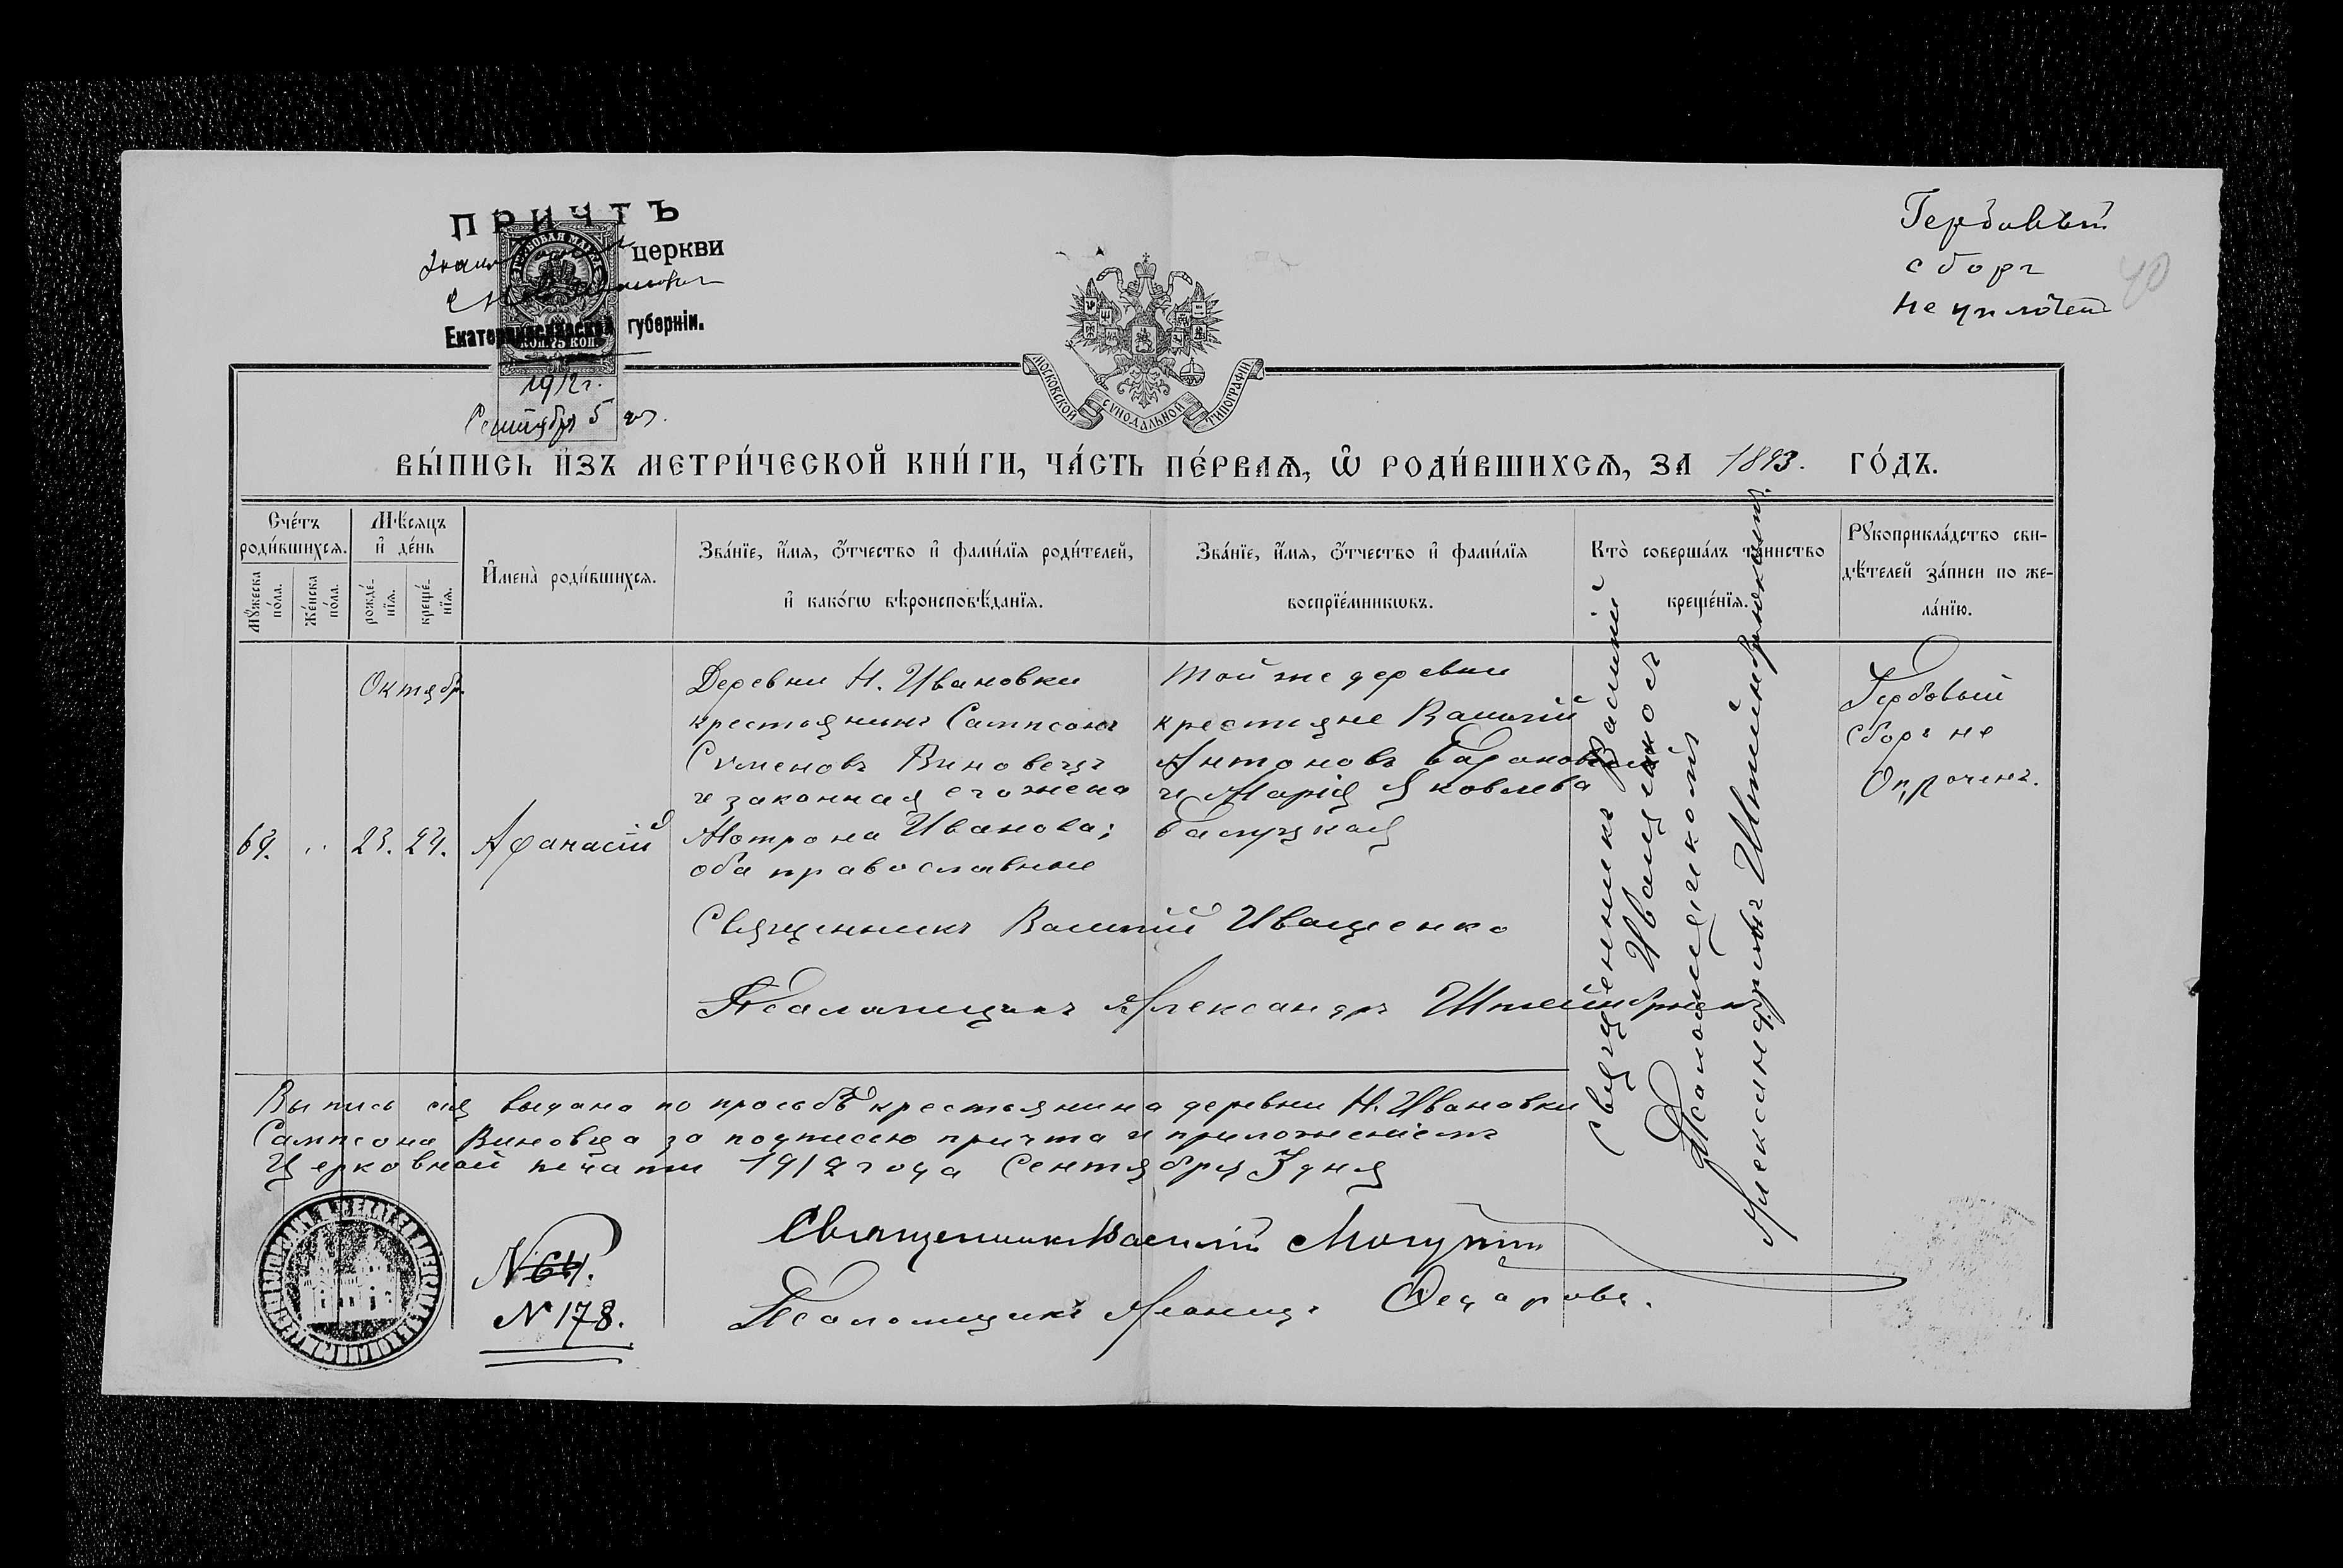 ПРИЧТЪ
церкви
Екатеринославской губерніи.
ГЕРБОВАЯ МАРКА
75 КОП.
1912 г.
Сентября 5 дня.
Гербовый
сборъ
не уплоченъ
40
МОСКОВСКОЙ СѴНОДАЛЬНОЙ ТИПОГРАФІИ
ВЫ́ПИСЬ И҆ЗЪ МЕТРИ́ЧЕСКОЙ КНИ́ГИ, ЧА́СТЬ ПЕ́РВАѦ, Ѡ҆ РОДИ́ВШИХСѦ, ЗА 1893. ГО́ДЪ.
Сче́тъ роди́вшихсѧ.
Мꙋ́жеска по́ла.
Же́нска по́ла.
Мѣ́сѧцъ и҆ де́нь
рожде́нїѧ.
креще́нїѧ.
И҆мена̀ роди́вшихсѧ.
Зва́нїе, и҆́мѧ, ѻ҆́тчество и҆ фами́лїѧ роди́телей,
и҆ како́гѡ вѣроисповѣ́данїѧ.
Зва́нїе, и҆́мѧ, ѻ҆́тчество и҆ фами́лїѧ
воспрїе́мникѡвъ.
Кто̀ соверша́лъ та́инство
креще́нїѧ.
Рꙋкоприкла́дство сви-
дѣ́телей за́писи по же-
ла́нїю.
Октябр.
69. " 23. 24. Афанасій
Деревни Н. Ивановки
крестьянинъ Сампсонъ
Сѵменовъ Виновецъ
и законная его жена
Мотрона Иванова;
оба православные
Той же деревни
крестьяне Василій
Антоновъ
и Марія Яковлева
Священникъ Василій
Иващенко съ
Псаломщикомъ
Александромъ Штейнбрюкомъ.
Гербовый
сборъ не
Оплоченъ.
Священникъ Василій Иващенко
Псаломщикъ Александръ Штейнбрюкъ
Выпись сія выдана по просьбѣ крестьянина деревни Н. Ивановки
Сампсона Виновца за подписею причта и приложеніемъ
Церковной печати 1912 года Сентября 3 дня
N 64.
N 178.
Священникъ Василій Могутин
Псаломщикъ Леонидъ Федоровъ.